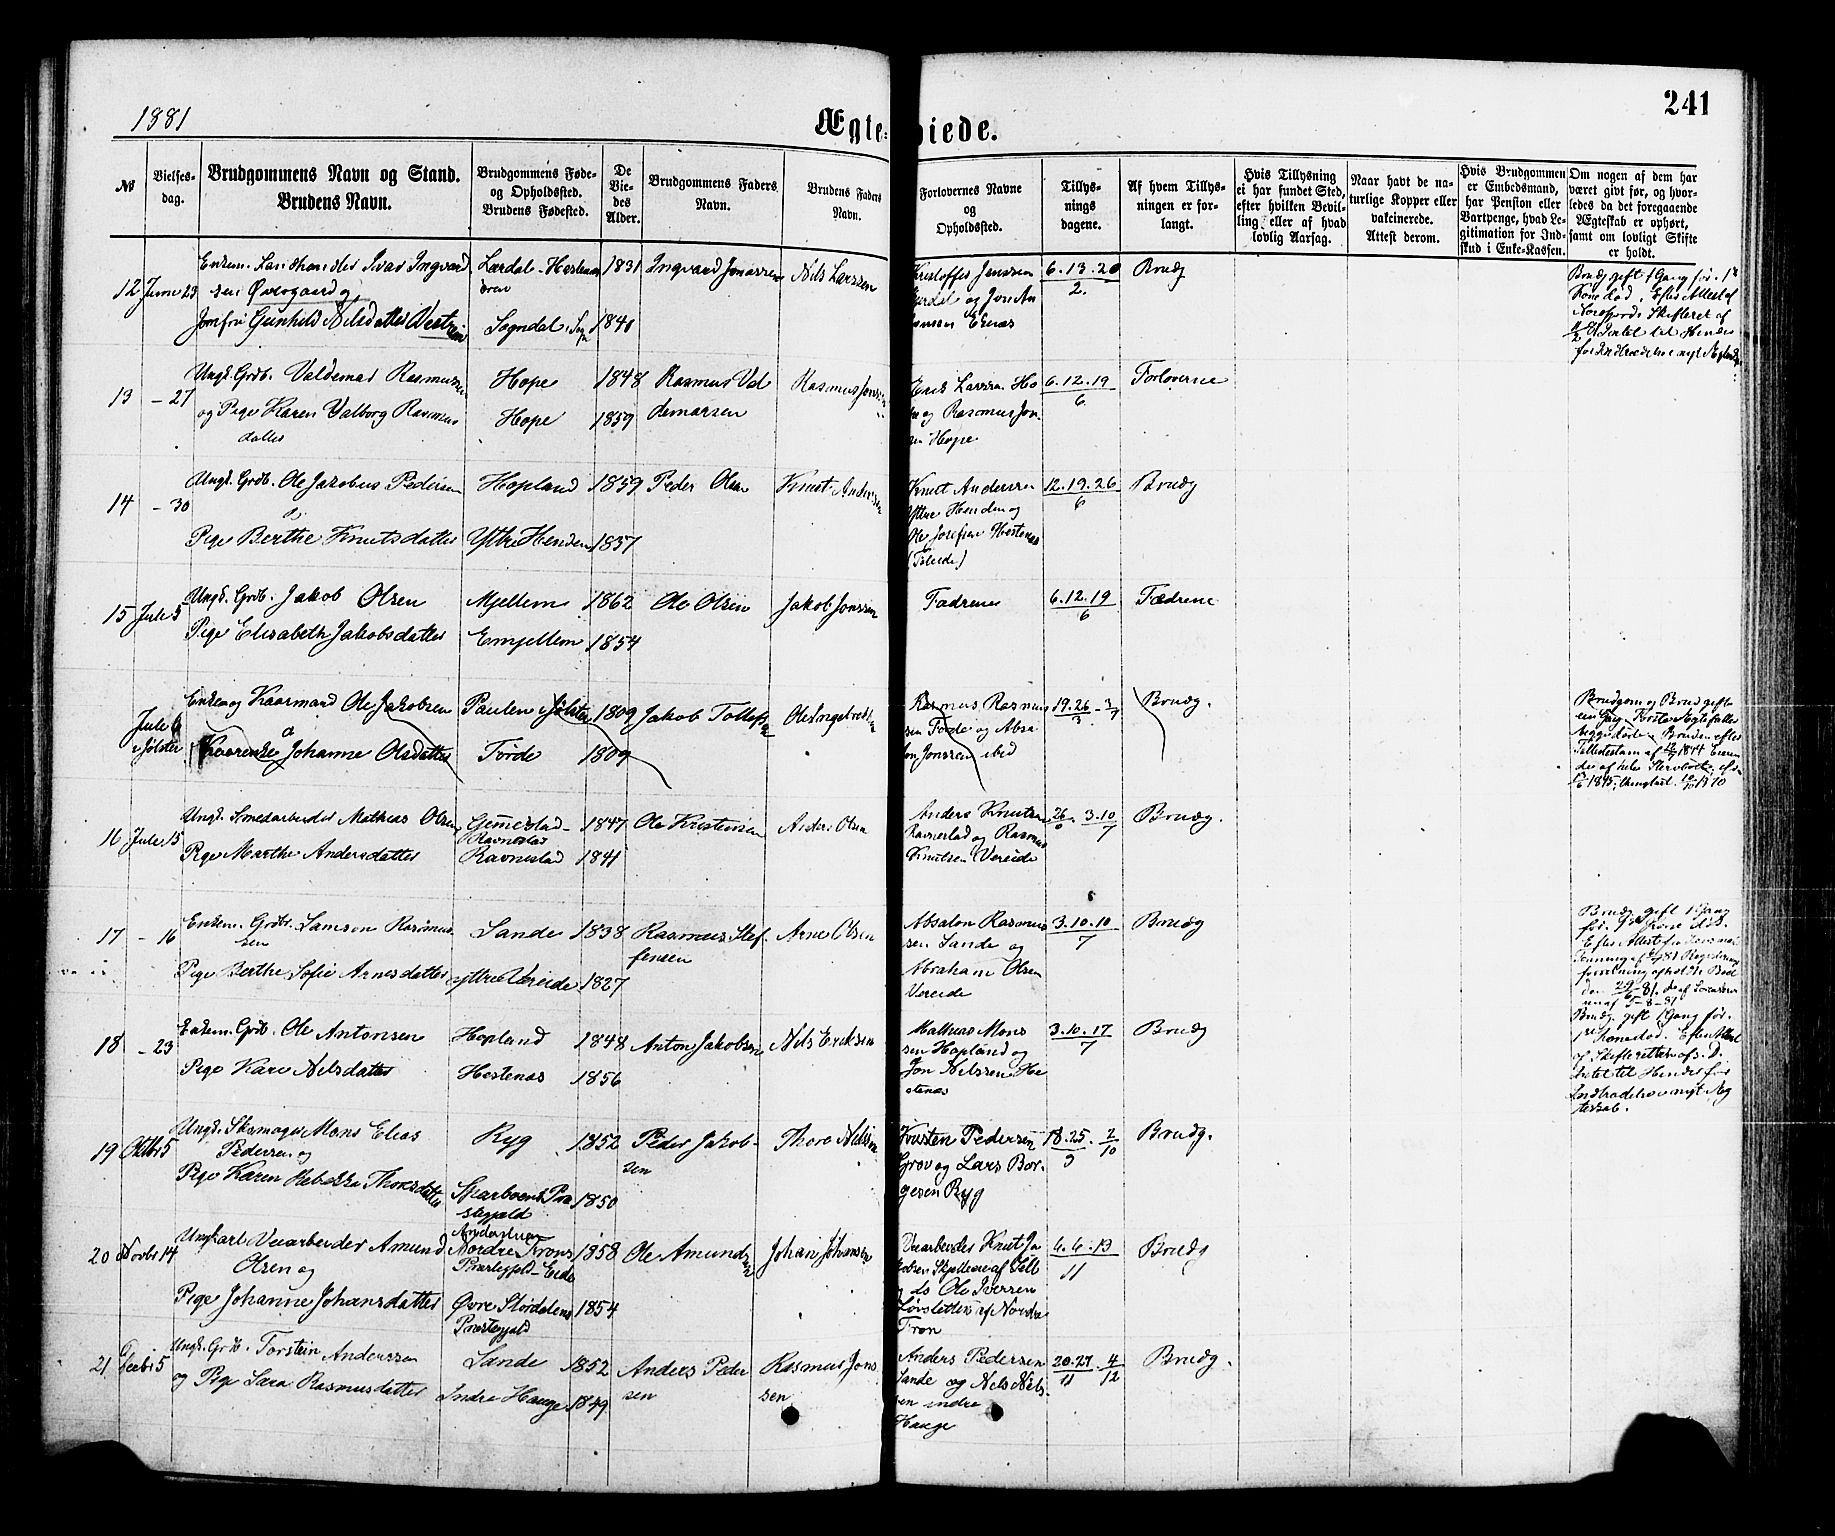 1881
Ægte-
viede.
241
№
Vielses-
dag.
Brudgommens Navn og Stand.
Brudens Navn.
Brudgommens Føde-
og Opholdssted.
Brudens Fødested.
De
Vie-
des
Alder.
Brudgommens Faders
Navn.
Brudens Faders
Navn.
Forlovernes Navne
og
Opholdssted.
Tillys-
nings
dagene.
Af hvem Tillys-
ningen er for-
langt.
Hvis Tillysning
ei har fundet Sted,
efter hvilken Bevil-
ling eller af hvad
lovlig Aarsag.
Naar havt de na-
turlige Kopper eller
vakcinerede.
Attest derom.
Hvis Brudgommen
er Embedsmand,
har Pension eller
Vartpenge, hvad Le-
gitimation for Ind-
skud i Enke-Kassen.
Om nogen af dem har
været givt før, og hvor-
ledes da det foregaaende
Ægteskab er ophørt,
samt om lovligt Skifte
er holdt.
12 Juni 23
Enkem. Landhandler Ivar Ingvard
sen Øvregaard og
Jomfru Gunhild Nilsdatter Vestrein
Lærdal - Hestenes
øren
Sogndal i Sogn
1831
1841
Ingvard Jonassen
Nils Larssen
Kristoffer Janssen
Lærdal og Jon An
tonsen Ekenæs
6.13.20
2.
Brudg
Brudg gift 1 Gang før. 1ste
Kone død. Efter Attest af
Nordfjords Skifteret af
Intet til Hinder
for Indtrædelse i nyt Ægteskab
13 - 27
Ungk. Grdb. Valdemar Rasmussen
og Pige Karen Valborg Rasmus
datter
Hope
Hope
1848
1859
Rasmus Val
demarsen
Rasmus Jonsen
Erik Larssen Ho
pe og Rasmus Jon
sen Hope
6.12.19
6
Forloverne
14 - 30
Ungk. Grdb. Ole Jakobus Pedersen
og
Pige Berthe Knutsdatter
Hopland
Ytre Henden
1859
1857
Peder Olsen
Knut Andersen
Knut Andersen
Ytre Henden og
Ole Josefsen Hestenes
12.19.26
6
Brudg
15 Juli 5
Ungk. Grdb. Jakob Olsen
Pige Elisabeth Jakobsdatter
Mjellem
Emjellem
1862
1854
Ole Olsen
Jakob Jonssen
Fædrene
6.12.19
6
Fædrene
Juli 6
i Jølster
Enkem og Kaarmand Ole Jakobsen
og
Kaarenke Johanne Olsdatter
Paulen i Jølster
Førde
1809
1809
Jakob Tollefs
Ole Ingebretsen
Rasmus Rasmus
sen Førde og Absa
lon Jonssen ibid
19.26 - 3
3 7
Brudg.
Brudgom og Brud gifte
een Gang. Første Ægtefæller
begge døde. Bruden efter
16 Juli 15
Ungk. Smedarbeider Mathias Olsen
Pige Marthe Andersdatter
Gimestad -
Ravnestad
Ravnestad
1847
1841
Ole Kristensen
Anders Olsen
Anders Knutsen
Ravnestad og Rasmus
Knutsen Vereide
26. 3.10
6 7
Brudg.
17 - 16
Enkem. Grdbr. Samson Rasmus
sen
Pige Berthe Sofie Arnesdatter
Sande
Ytre Vereide
1838
1827
Rasmus Stef
fensen
Arne Olsen
Absalon Rasmus
sen Sande og
Abraham Olsen
Vereide
3.10.10
7
Brudg
Brudg. gift 1 Gang
før.
18 - 23
Enkem. Grdb. Ole Antonsen
Pige Kari Nilsdatter
Hopland
Hestenes
1848
1856
Anton Jakobsen
Nils Eriksen
Mathias Mons
sen Hopland og
Jon Nilssen He
stenes
3.10.17
7
Brudg
Brudg. gift 1 Gang før.
1ste Kone død. Efter Attest
af Skifteretten af s. D.
Intet til Hinder for
Indtrædelse i nyt Æg
teskab.
19 Oktbr 5
Ungk. Skomager Mons Elias
Pedersen og
Pige Karen Rebekka Thoresdatter
Ryg
Sparboens Præ
stegjeld
1852
1850
Peder Jakob-
sen
Thore Nilssen
Kristen Pedersen
Grov og Lars Bør-
gesen Ryg
18.25. 2
9 10
Brudg.
20 Novbr 14
Ungkarl Veiarbeider Amund
Olsen og
Pige Johanne Johansdatter
Nordre Frons
Præstegjeld - Eide
Øvre Størdalens
Præstegjeld
1858
1854
Ole Amundsen
Johan Johansen
Veiarbeider Knut Ja
kobsen
og do Ole Iversen
af Nordre
Fron
4.6.13
11
Brudg
21 Decbr 5
Ungk. Grdb. Torstein Anderssen
og Pige Sara Rasmusdatter
Sande
Indre Hauge
1852
1849
Anders Peder
sen
Rasmus Jons
sen
Anders Pedersen
Sande og Nils Nils
sen indre
Hauge
20.27. 4
11 12
Brudg.